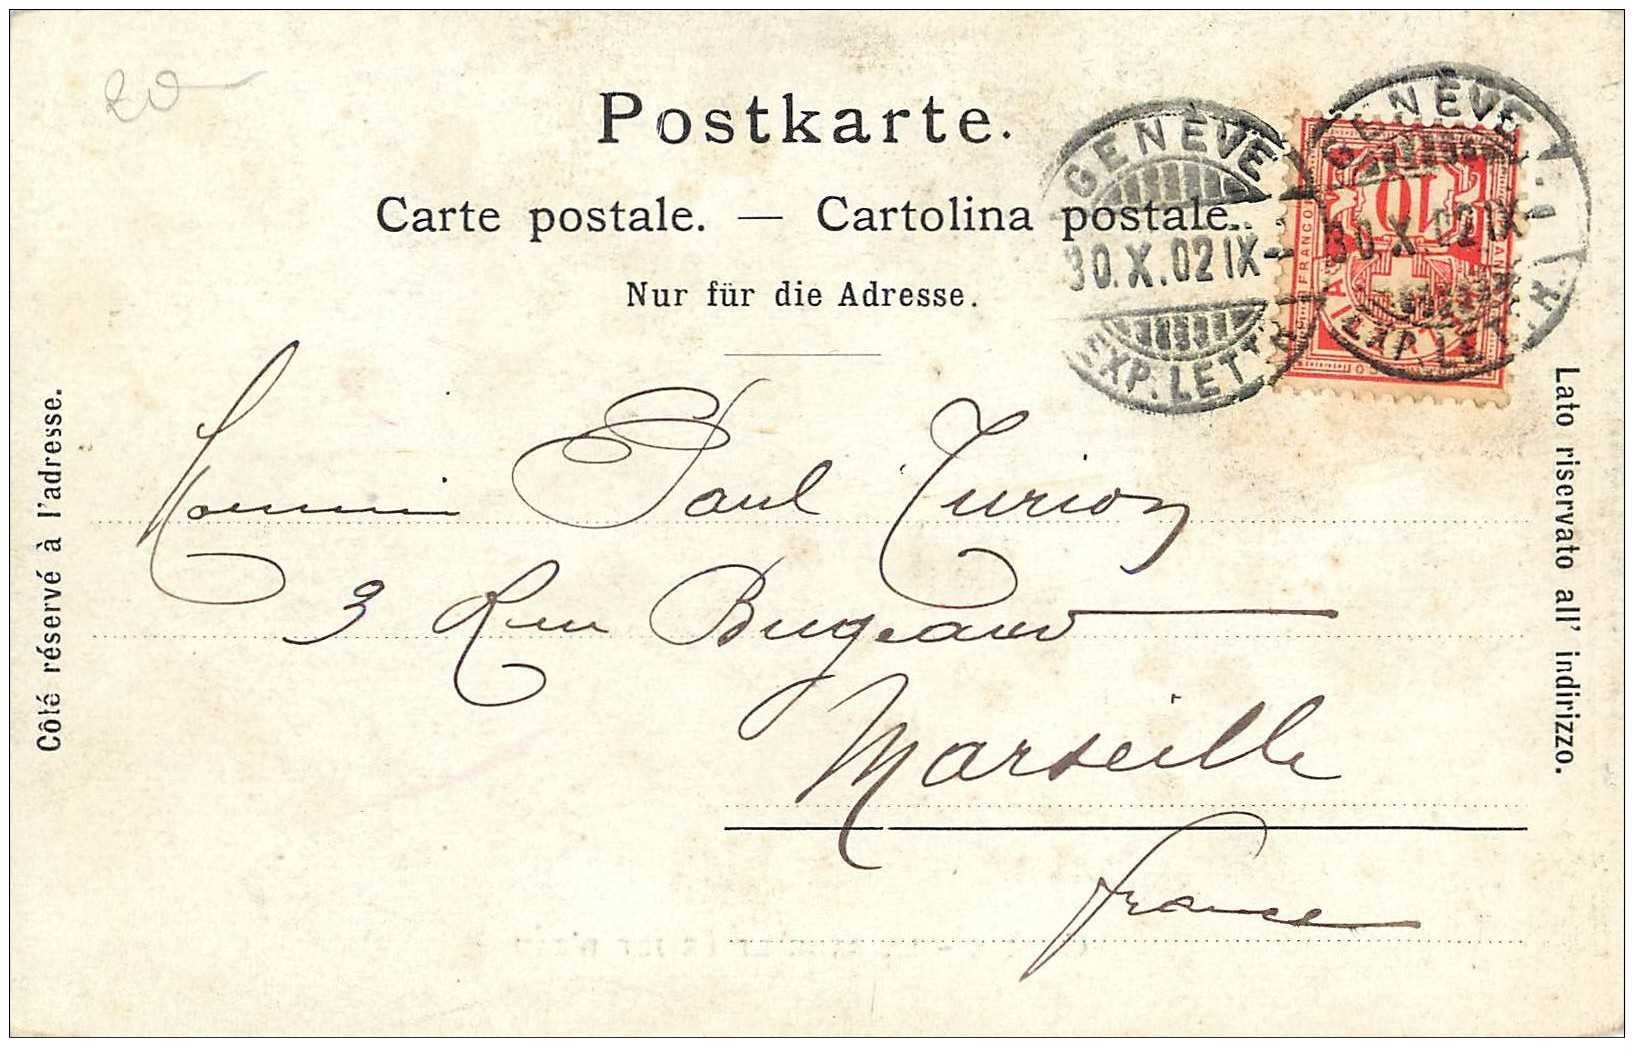 20
Postkarte.
Carte postale. — Cartolina postale.
Nur für die Adresse.
GENÈVE
30.X.02 IX-
EXP. LETTR.
GENÈVE
30.X.02 IX
EXP. LETTR.
10
FRANCO
Côté réservé à l'adresse.
Lato riservato all' indirizzo.
Monsieur Paul Turion
3 Rue Bugeaud
Marseille
France